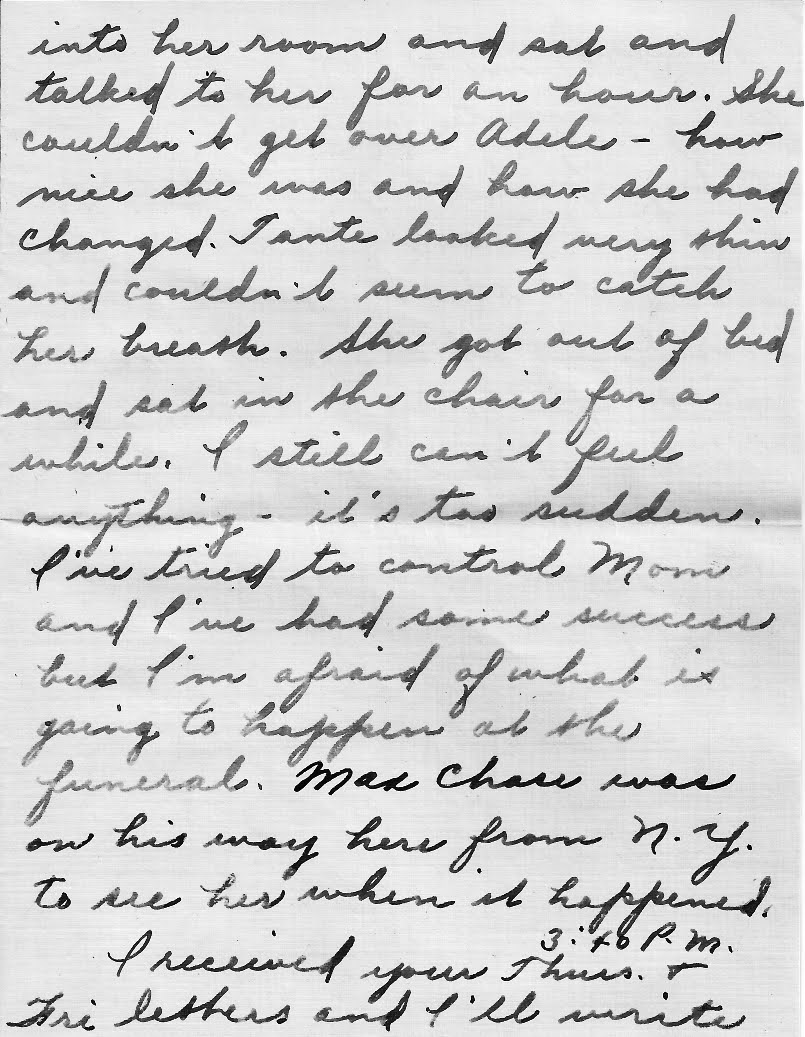 into her room and sat and
talked to her for an hour. She
couldn't get over Adele - how
nice she was and how she had
changed. Tante looked very thin
and couldn't seem to catch
her breath. She got out of bed
and sat in the chair for a
while. I still can't feel
anything - it's too sudden.
I've tried to control Mom
and I've had some success
but I'm afraid of what is
going to happen at the
funeral. Max Chase was
on his way here from N.Y.
to see her when it happened.
3:40 P.M.
I received your Thurs. &
Fri letters and I'll write